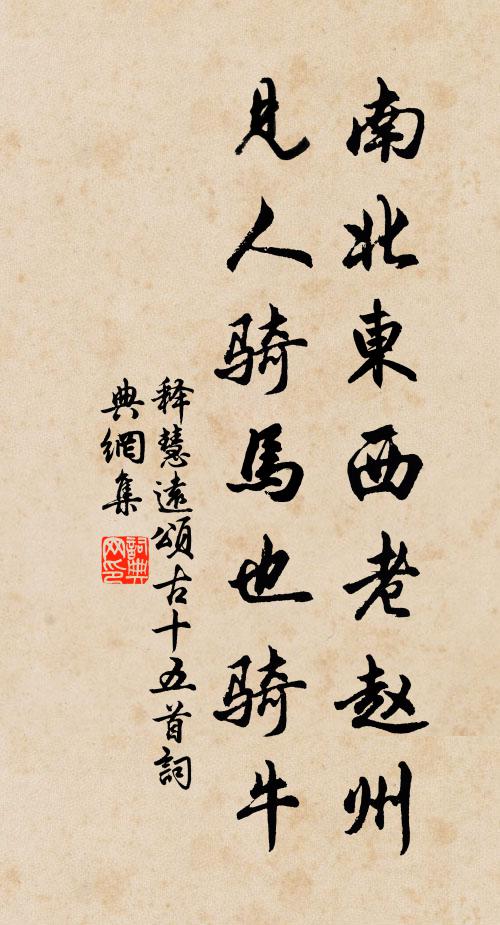 南北東西老赵州
見人骑馬也骑牛
释慧遠頌古十五首詞
典網集
詞典网印